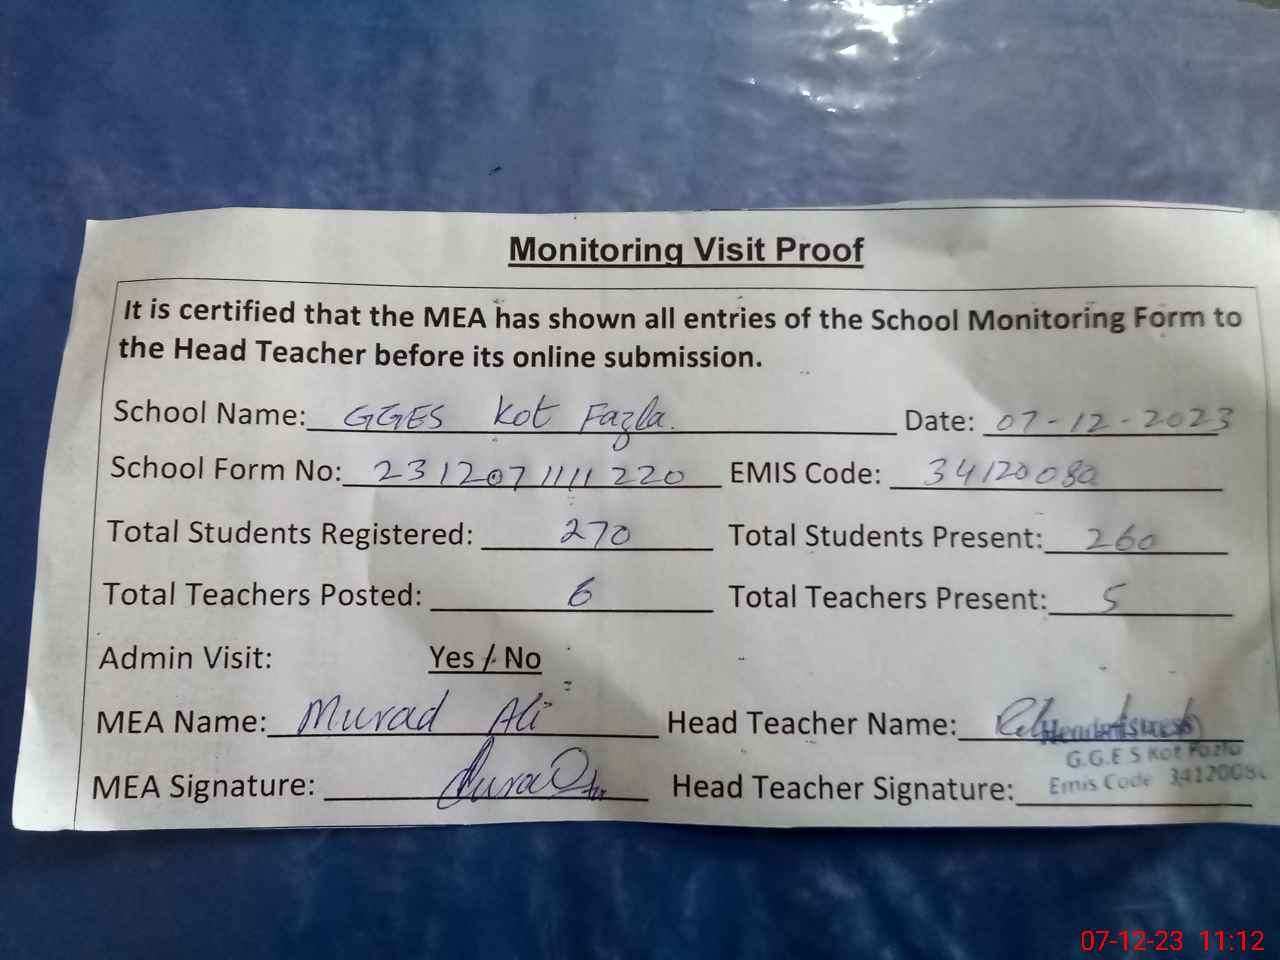 Monitoring Visit Proof
It is certified that the MEA has shown all entries of the School Monitoring Form to
the Head Teacher before its online submission.
School Name: GGES Kot Fazla. Date: 07-12-2023
School Form No: 231207 1111 220 EMIS Code: 34120080
Total Students Registered: 270 Total Students Present: 260
Total Teachers Posted: 6 Total Teachers Present: 5
Admin Visit: Yes / No
MEA Name: Murad Ali Head Teacher Name: Headmistress
G.G.E S Kot Fazla
MEA Signature: Head Teacher Signature: Emis Code 3412008
07-12-23 11:12